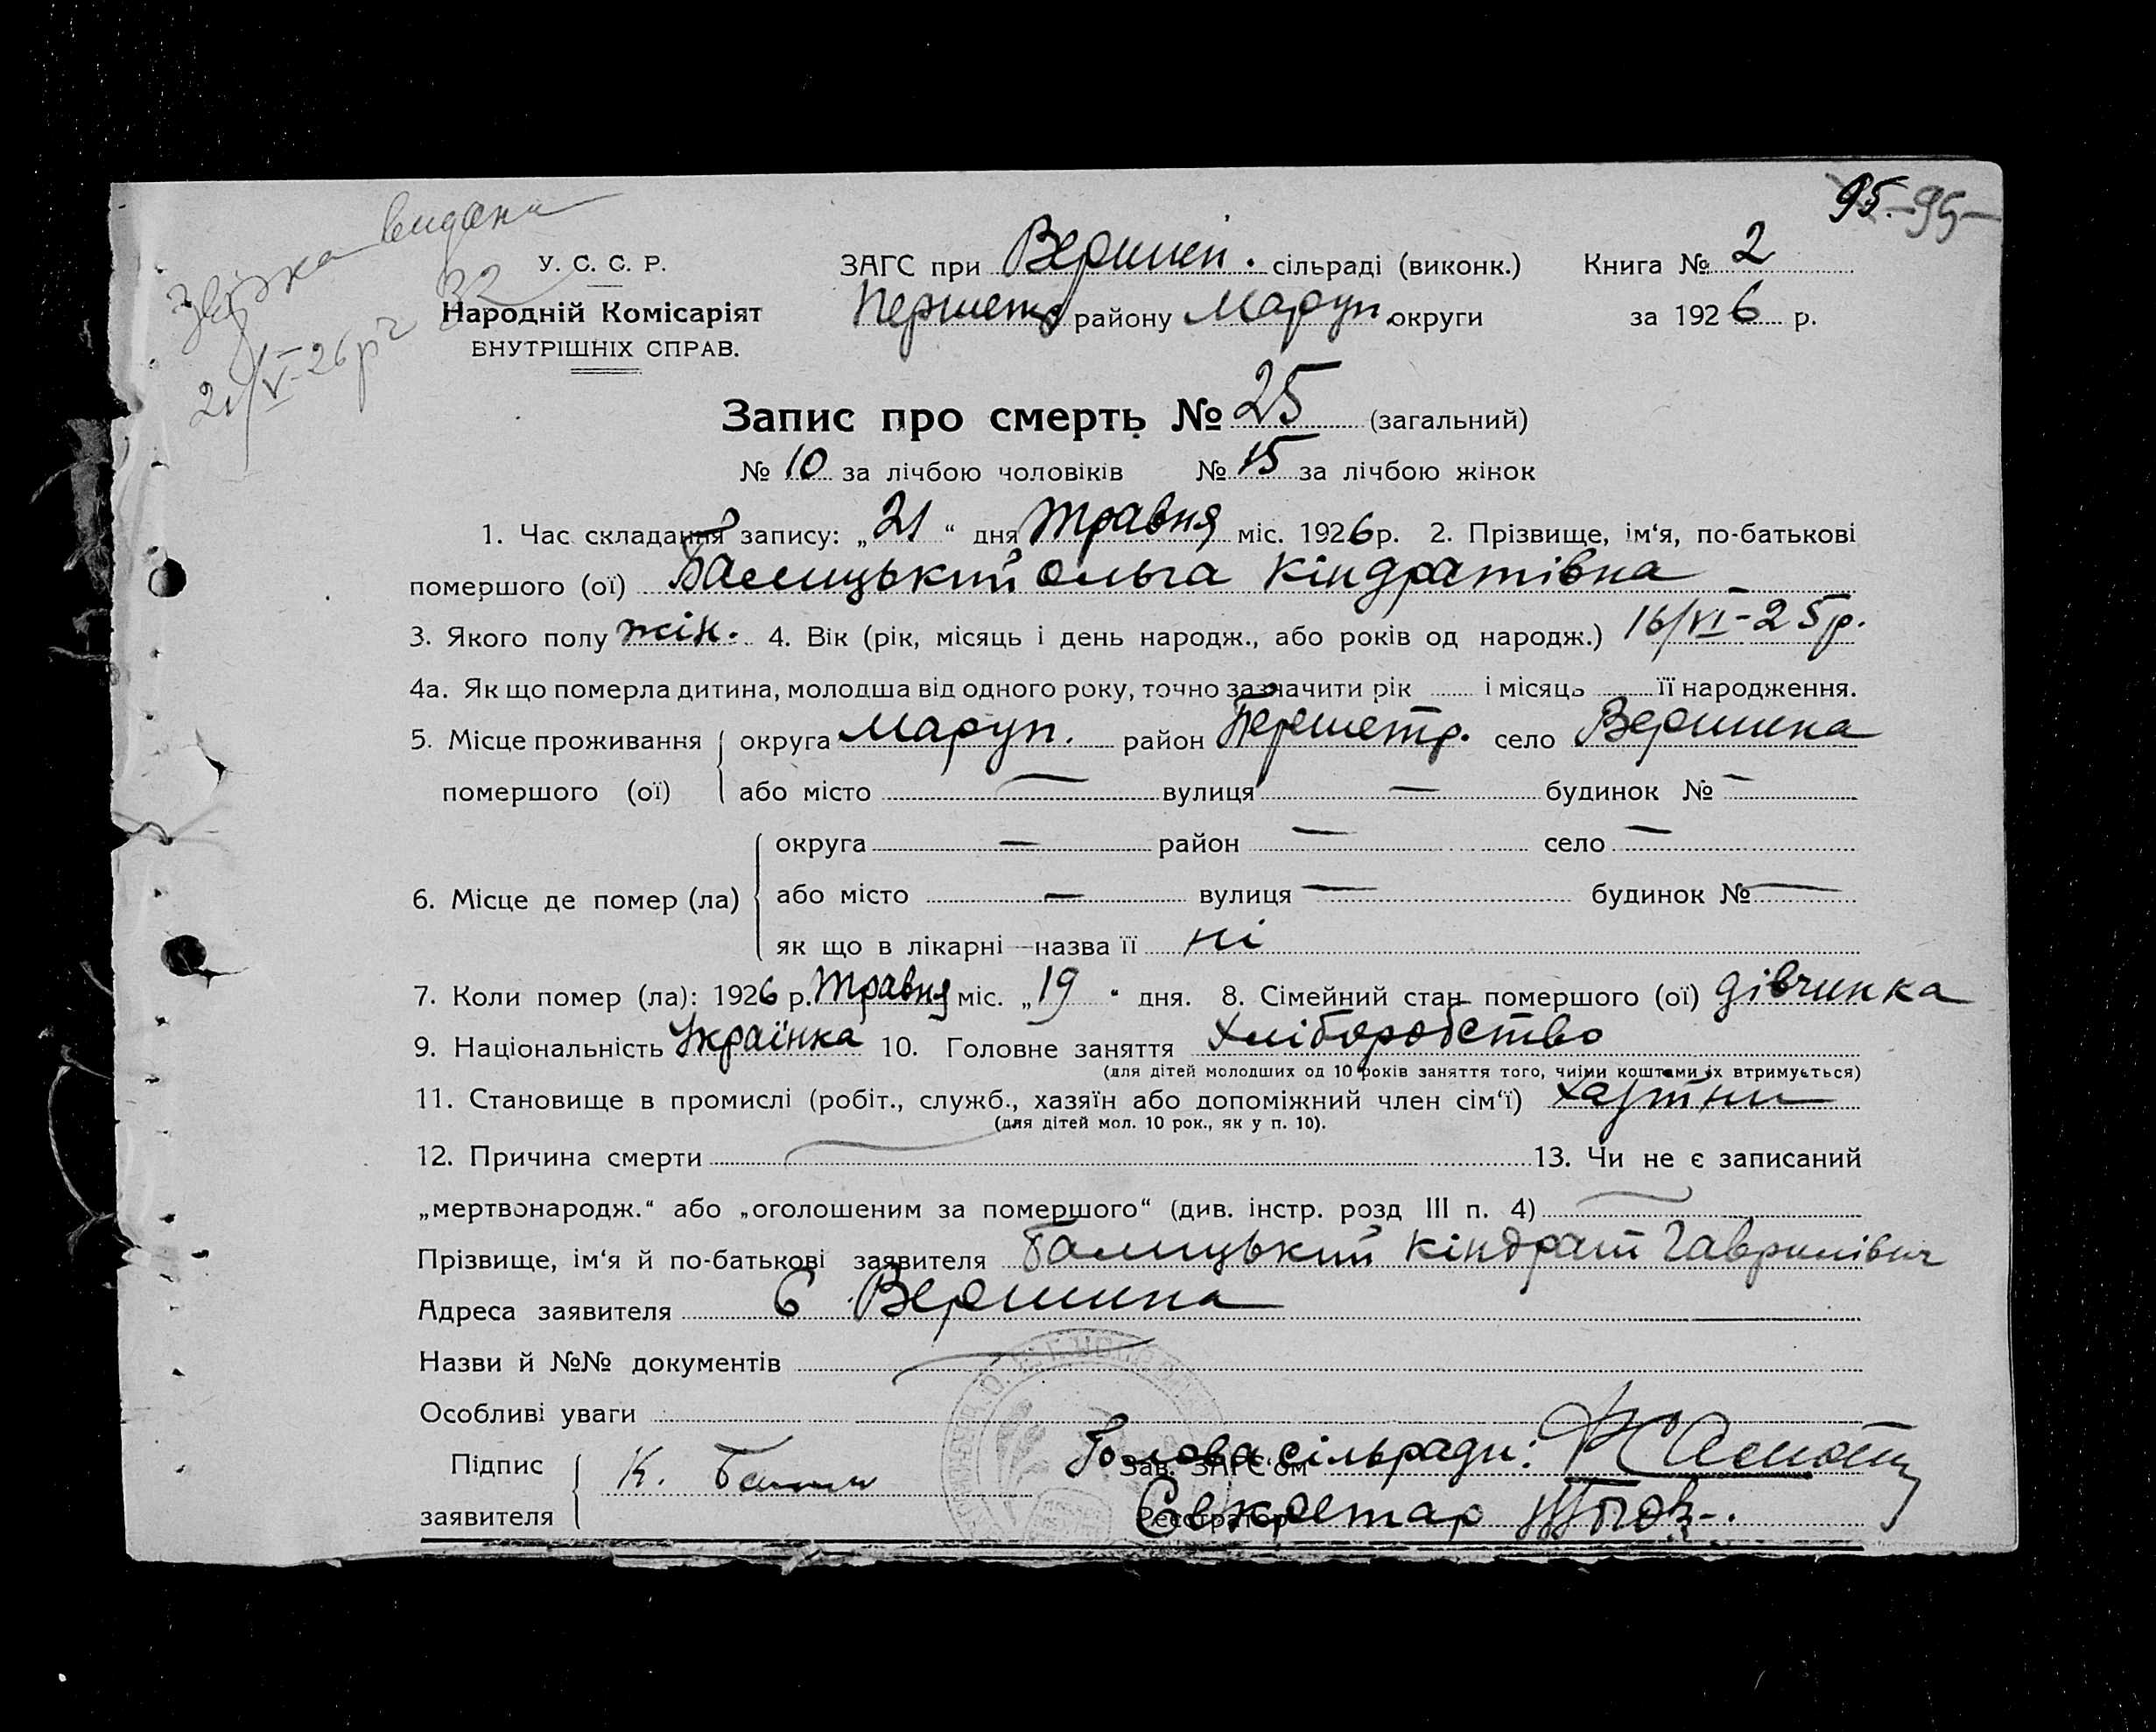 95. -95-
Звірка видана
21/V-26 р.
У. С. С. Р.
Народній Комісаріят
ВНУТРІШНІХ СПРАВ.
ЗАГС при Вершин. сільраді (виконк.)
Першетр району Маруп. округи
Книга № 2
за 1926 р.
Запис про смерть № 25 (загальний)
№ 10 за лічбою чоловіків № 15 за лічбою жінок
1. Час складання запису: „21“ дня травня міс. 1926 р. 2. Прізвище, ім‘я, по-батькові
помершого (ої) Балицький Ольга Кіндратівна
3. Якого полу жін. 4. Вік (рік, місяць і день народж., або років од народж.) 16/VI-25 р.
4а. Як що померла дитина, молодша від одного року, точно зазначити рік і місяць її народження.
5. Місце проживання округа Маруп. район Першетр. село Вершина
помершого (ої) або місто — вулиця — будинок № —
округа — район — село —
6. Місце де помер (ла) або місто — вулиця — будинок № —
як що в лікарні—назва її ні
7. Коли помер (ла): 1926 р. травня міс. „19“ дня. 8. Сімейний стан помершого (ої) дівчинка
9. Національність Українка 10. Головне заняття хліборобство
(для дітей молодших од 10 років заняття того, чиїми коштами їх втримується)
11. Становище в промислі (робіт., служб., хазяїн або допоміжний член сім‘ї)
(для дітей мол. 10 рок., як у п. 10).
12. Причина смерти — 13. Чи не є записаний
„мертвонародж.“ або „оголошеним за помершого“ (див. інстр. розд III п. 4) —
Прізвище, ім‘я й по-батькові заявителя Балицький Кіндрат Гаврилівич
Адреса заявителя С Вершина
Назви й №№ документів —
Особливі уваги
Підпис
заявителя К.
Зав. ЗАГС‘ом Голова сільради:
Реєстратор Секретар